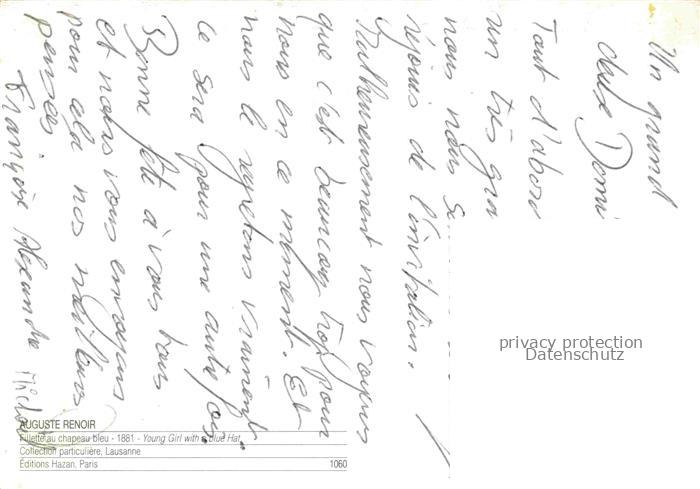 Un grand
deux
Tout d'abord
un très
nous nous
réjouis de l'invitation.
Malheureusement nous voyons
que c'est beaucoup trop pour
nous en ce moment. Et
nous le regretons vraiment
ce sera pour une autre fois.
Bonne fête à vous tous
et nous vous envoyons
pour cela nos meilleurs
pensées
Françoise Alexandre
AUGUSTE RENOIR
Fillette au chapeau bleu - 1881 - Young Girl with a blue Hat
Collection particulière, Lausanne
Éditions Hazan, Paris 1060
privacy protection
Datenschutz